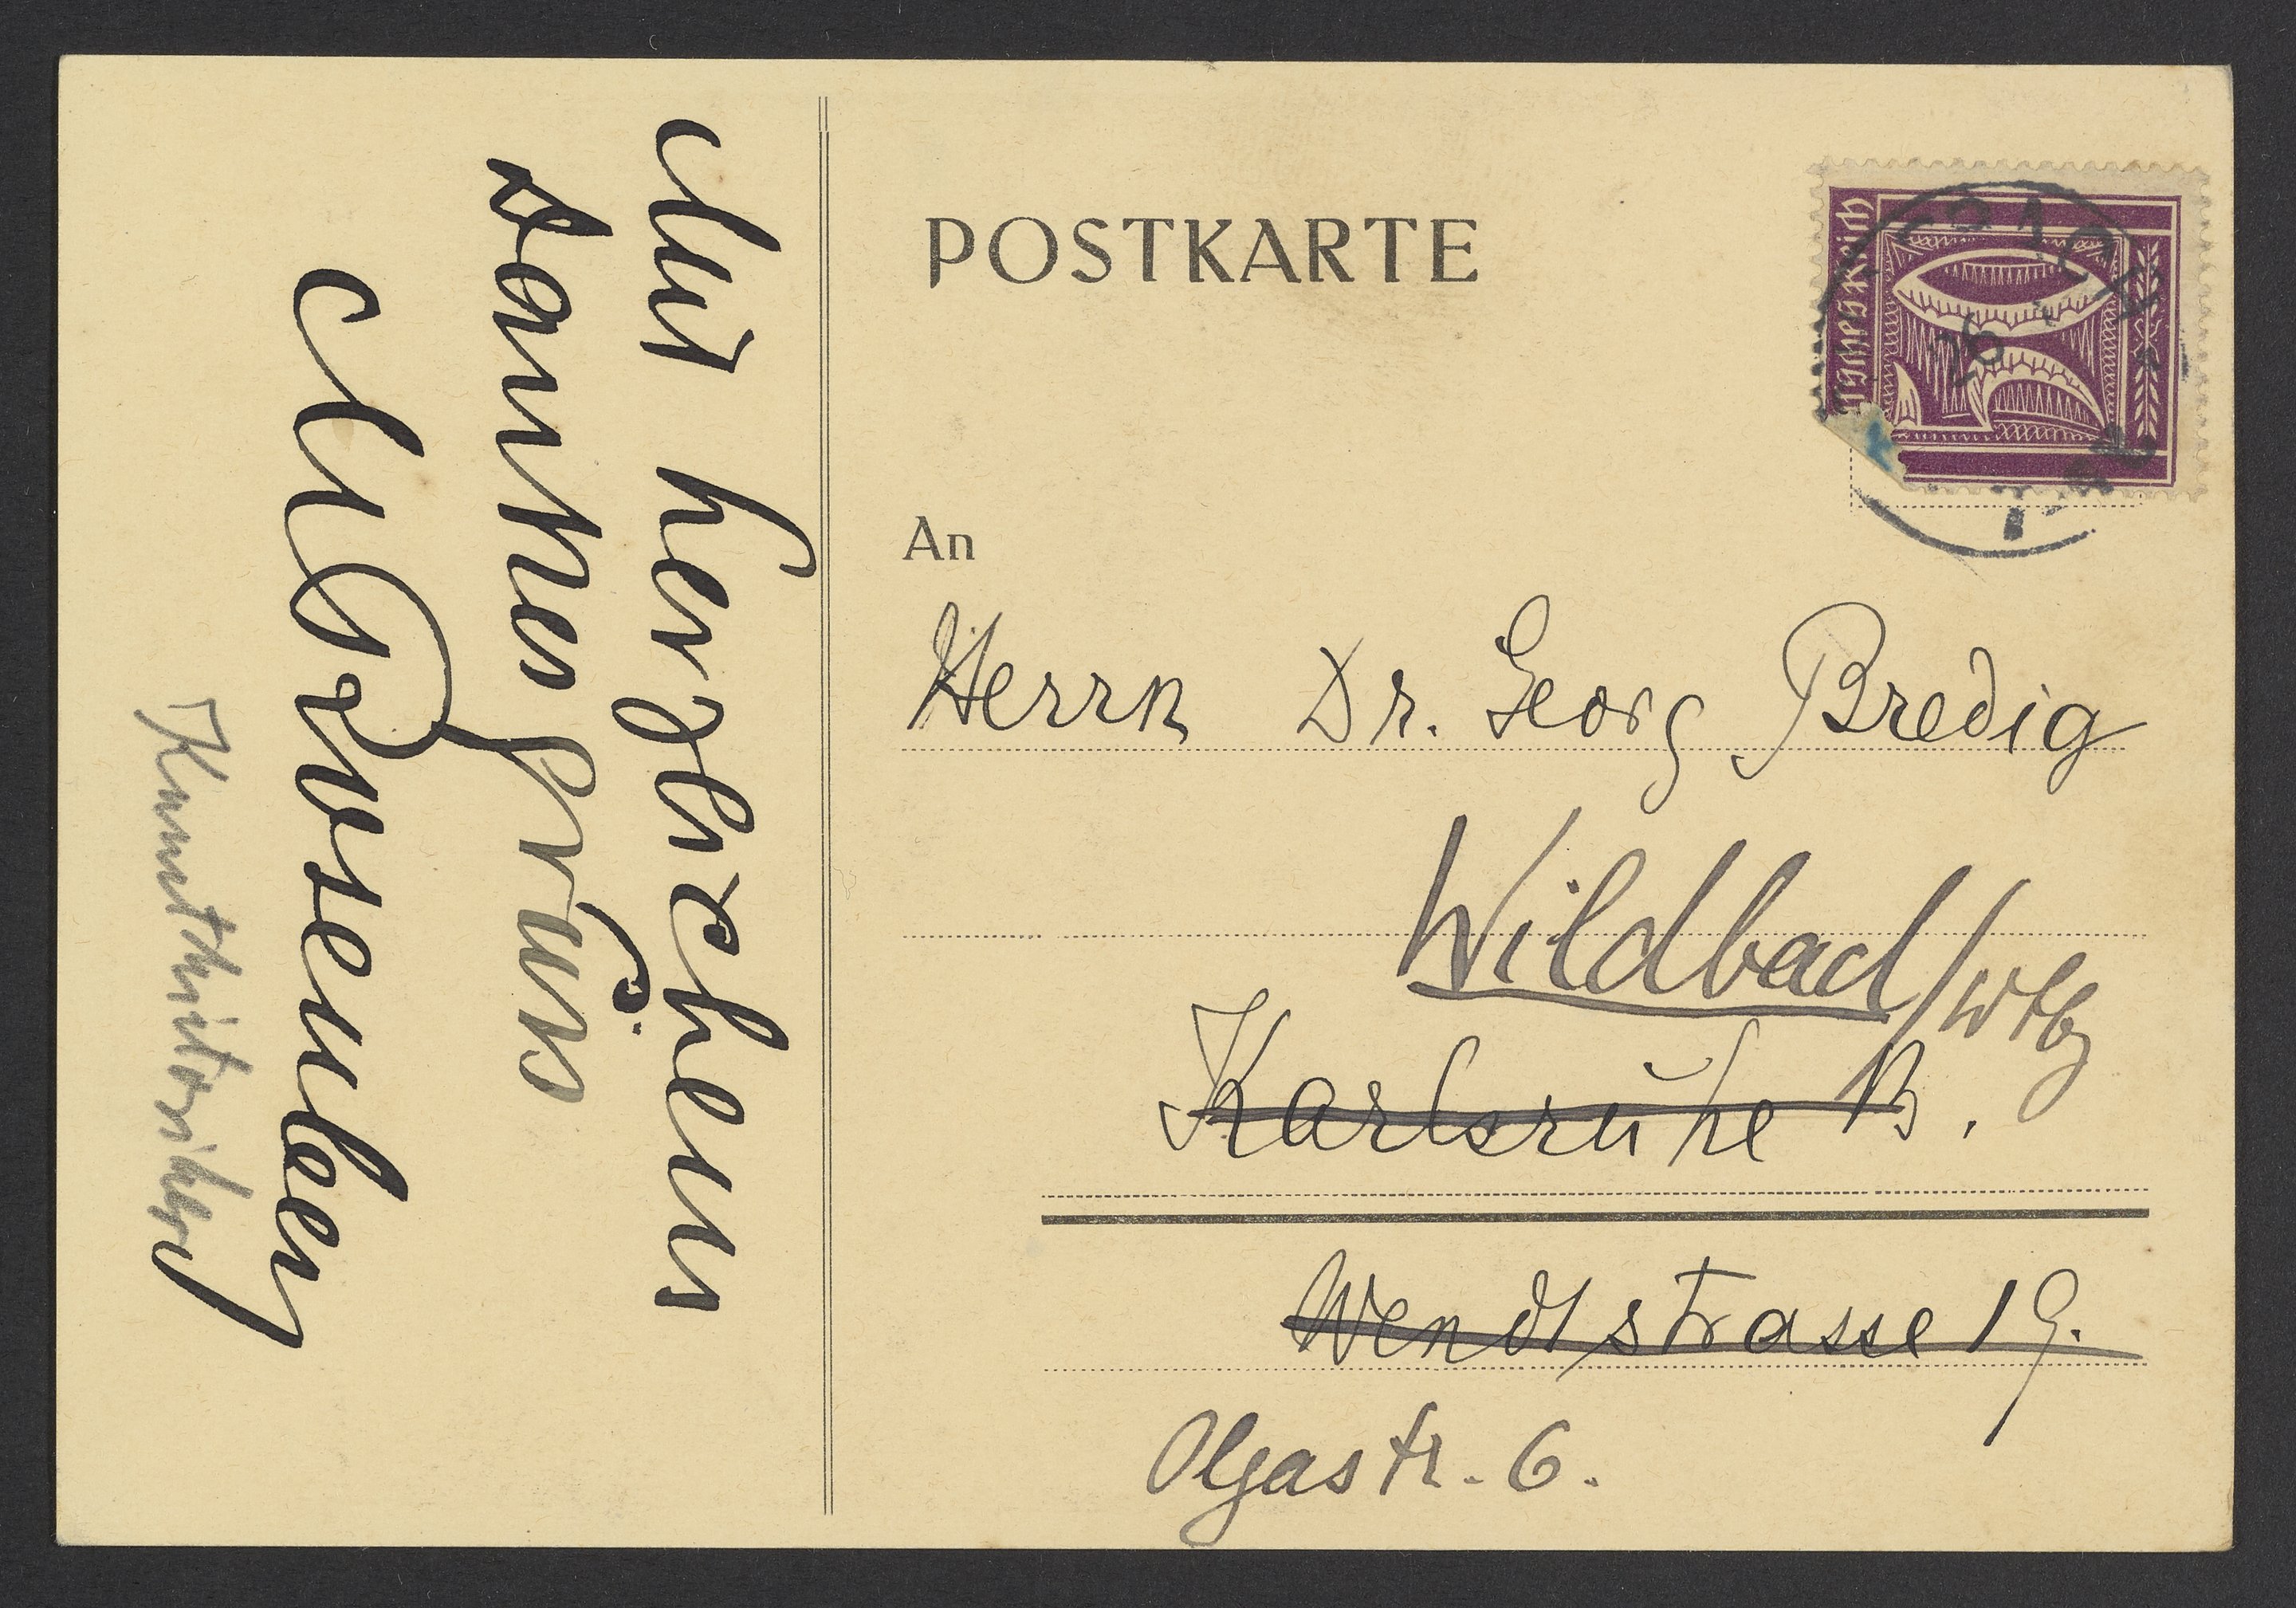 Mit herzlichem
Dankesgruss
M Rosenberg
Kunsthistoriker
POSTKARTE
An
Herrn Dr. Georg Bredig
Wildbad/Wtbg
Karlsruhe B.
Wendtstrasse 19.
Olgastr. 6.
75